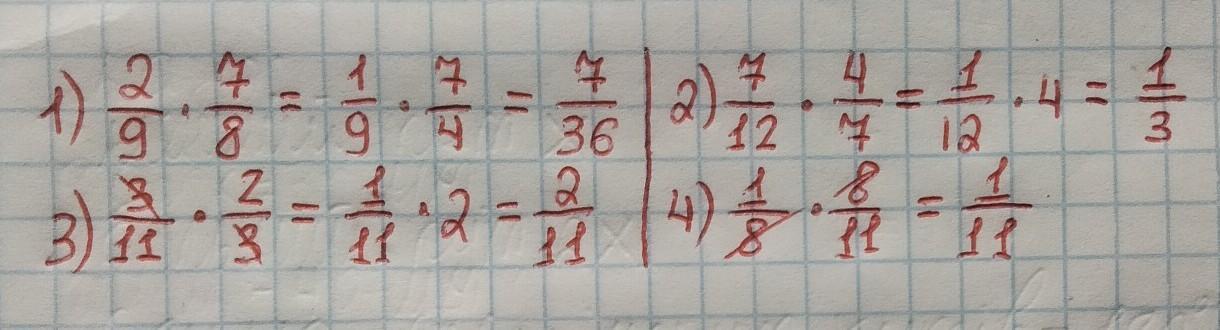 1) 2/9 · 7/8 = 1/9 · 7/4 = 7/36
2) 7/12 · 4/7 = 1/12 · 4 = 1/3
3) 3/11 · 2/3 = 1/11 · 2 = 2/11
4) 1/8 · 8/11 = 1/11